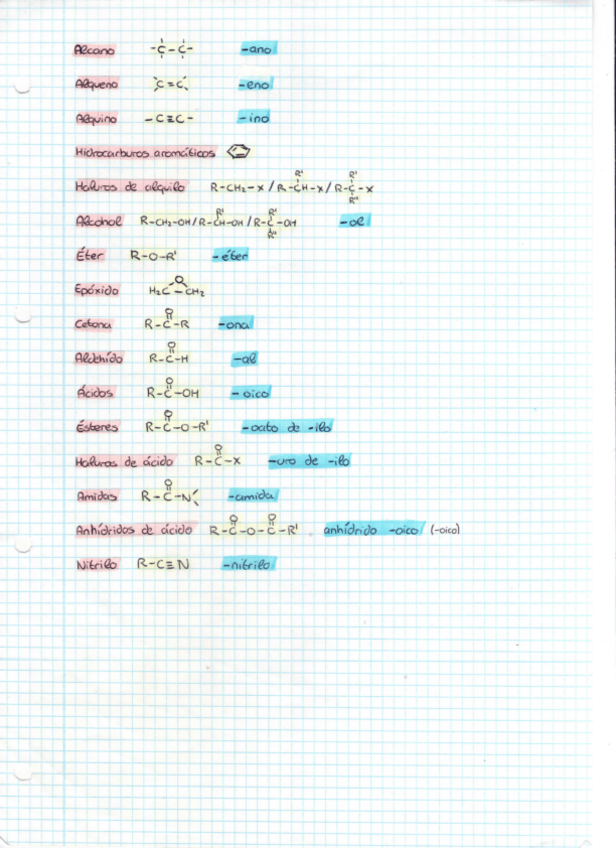 Alcano -C-C- -ano
Alqueno C=C -eno
Alquino -C≡C- -ino
Hidrocarburos aromáticos
Haluros de alquilo R-CH₂-X / R-CH-X / R-C-X R' R' R''
Alcohol R-CH₂-OH / R-CH-OH / R-C-OH R' R' R'' -ol
Éter R-O-R' -éter
Epóxido H₂C-CH₂ O
Cetona R-C-R O -ona
Aldehído R-C-H O -al
Ácidos R-C-OH O -oico
Ésteres R-C-O-R' O -oato de -ilo
Haluros de ácido R-C-X O -uro de -ilo
Amidas R-C-N O -amida
Anhídridos de ácido R-C-O-C-R' O O anhídrido -oico (-oico)
Nitrilo R-C≡N -nitrilo